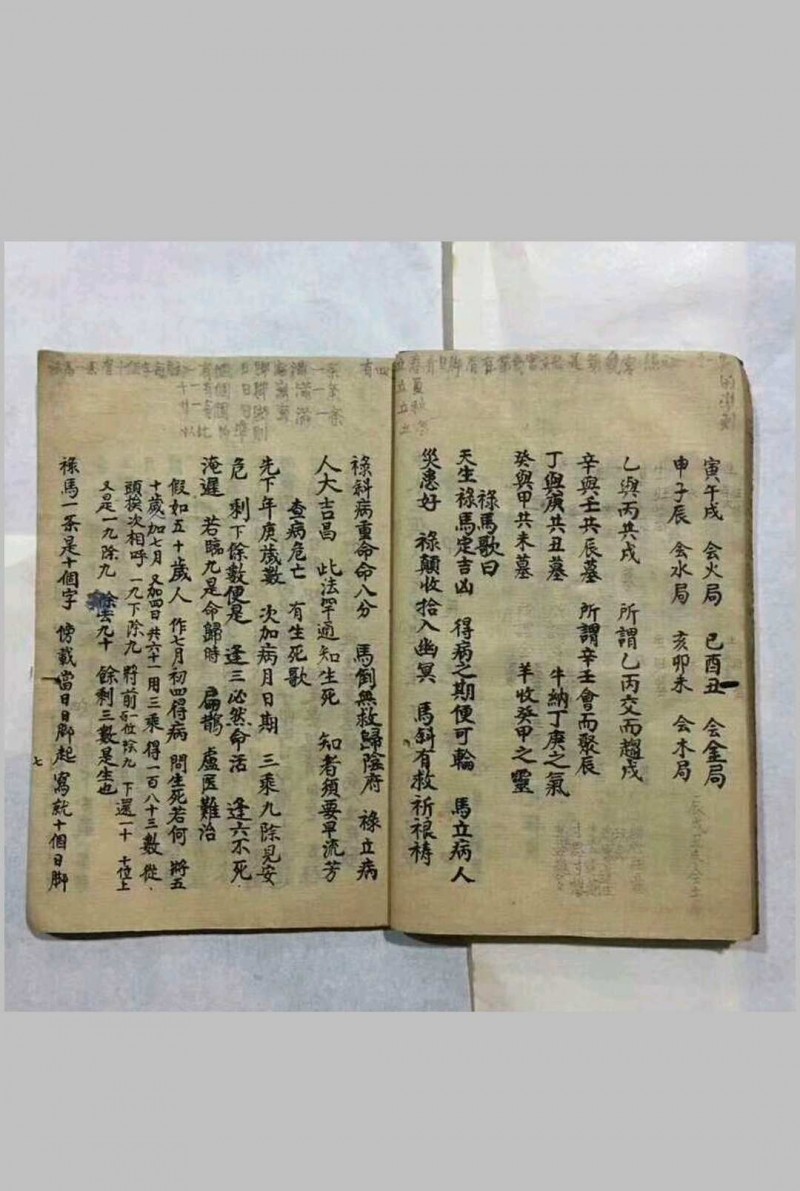 寅午戌　会火局　巳酉丑　会金局
申子辰　会水局　亥卯未　会木局
乙與丙共戌　所謂乙丙交而趨戌
辛與壬共辰墓　所謂辛壬會而聚辰
丁與庚共丑墓　牛納丁庚之氣
癸與甲共未墓　羊收癸甲之靈
祿馬歌曰
天生祿馬定吉凶　得病之期便可輪　馬立病人
災患好　祿顛收拾入幽冥　馬斜有救祈根禱
祿科病重命八分　馬倒無救歸陰府　祿立病
人大吉昌　此法罕通知生死　知者須要早流芳
查病危亡　有生死歌
先下年庚歲數　次加病月日期　三乘九除見安
危　剩下餘數便是　逢三必然命活　逢六不死
淹遲　若臨九是命歸時　扁鵲盧医難治
假如五十歲人　作七月初四得病　問生死若何　將五
十歲加七月　又加四日共六十一　用三乘得一百八十三數　從
頭挨次相呼　一九下除九　將前一位除九　下還一十　七位上
又是一九除九　除去九十　餘剩三數是生也
祿馬一条是十個字　傍載當日日脚起　寫就十個日脚
七